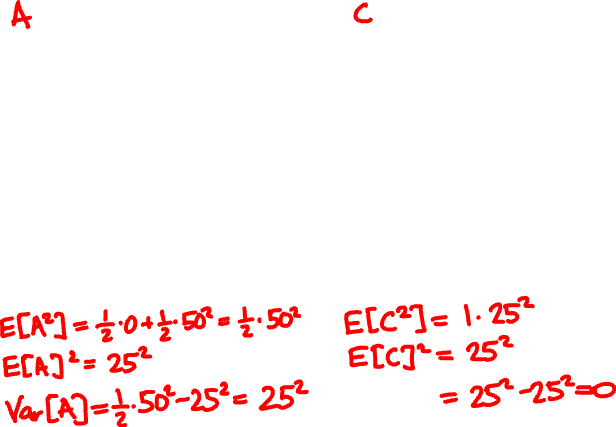 A
C
E[A²] = 1/2 · 0 + 1/2 · 50² = 1/2 · 50²
E[A]² = 25²
Var[A] = 1/2 · 50² - 25² = 25²
E[C²] = 1 · 25²
E[C]² = 25²
= 25² - 25² = 0